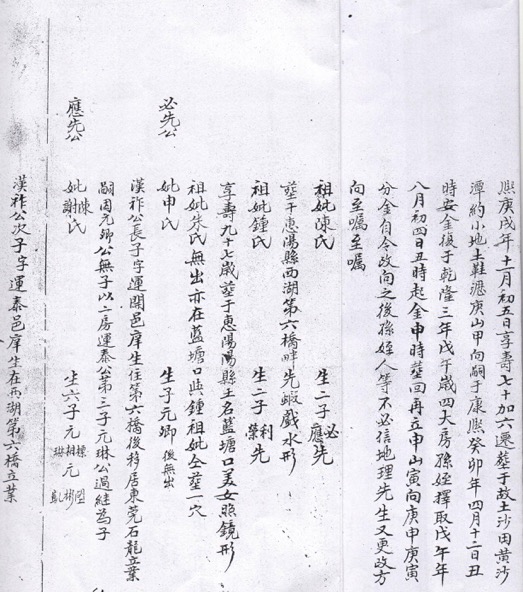 熈庚戌年十二月初五日享壽七十加六遷塟于故土沙田黃沙
潭約小地土鞋𣺌庚山甲向嗣于康熈癸卯年四月十二日丑
時安金復于乾隆三年戊午歲四大房孫姪擇取戊午年
八月初四日丑時起金申時塟回再立申山寅向庚申庚寅
分金自今改向之後孫姪人等不必信地理先生又更改方
向至嘱至嘱
祖妣陳氏 生二子 必先 應先
塟于惠陽縣西湖第六橋畔先蝦戲水形
祖妣鍾氏 生二子 利先 榮先
享壽九十七歲塟于惠陽縣土名藍塘口美女照鏡形
祖妣朱氏無出亦在藍塘口與鍾祖妣仝塟一穴
必先公 妣申氏 生子元卿後無出
漢祚公長子字運開邑庠生住第六橋後移居東莞石龍立業
嗣因元卿公無子以二房運泰公第三子元琳公過継為子
應先公 妣陳氏 謝氏 生六子元琳 元彬
漢祚公次子字運泰邑庠生在西湖第六橋立業